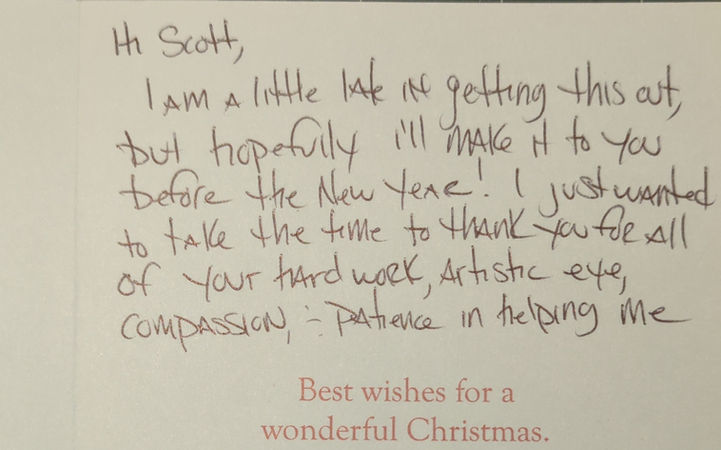 Hi Scott,
I am a little late in getting this out,
but hopefully i'll make it to you
before the New Year! I just wanted
to take the time to thank you for all
of your hard work, artistic eye,
compassion, & patience in helping me
Best wishes for a
wonderful Christmas.